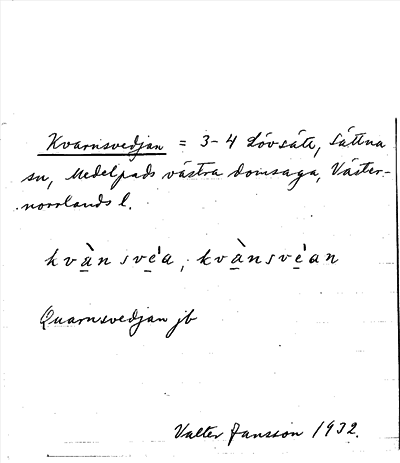 Kvarnsvedjan = 3-4 Lövsåti, Sättna
sn, Medelpads västra domsaga, Väster-
norrlands l.
kvä̀nsvèa, kvä̀nsvèan
Quarnsvedjan jb
Valter Jansson 1932.